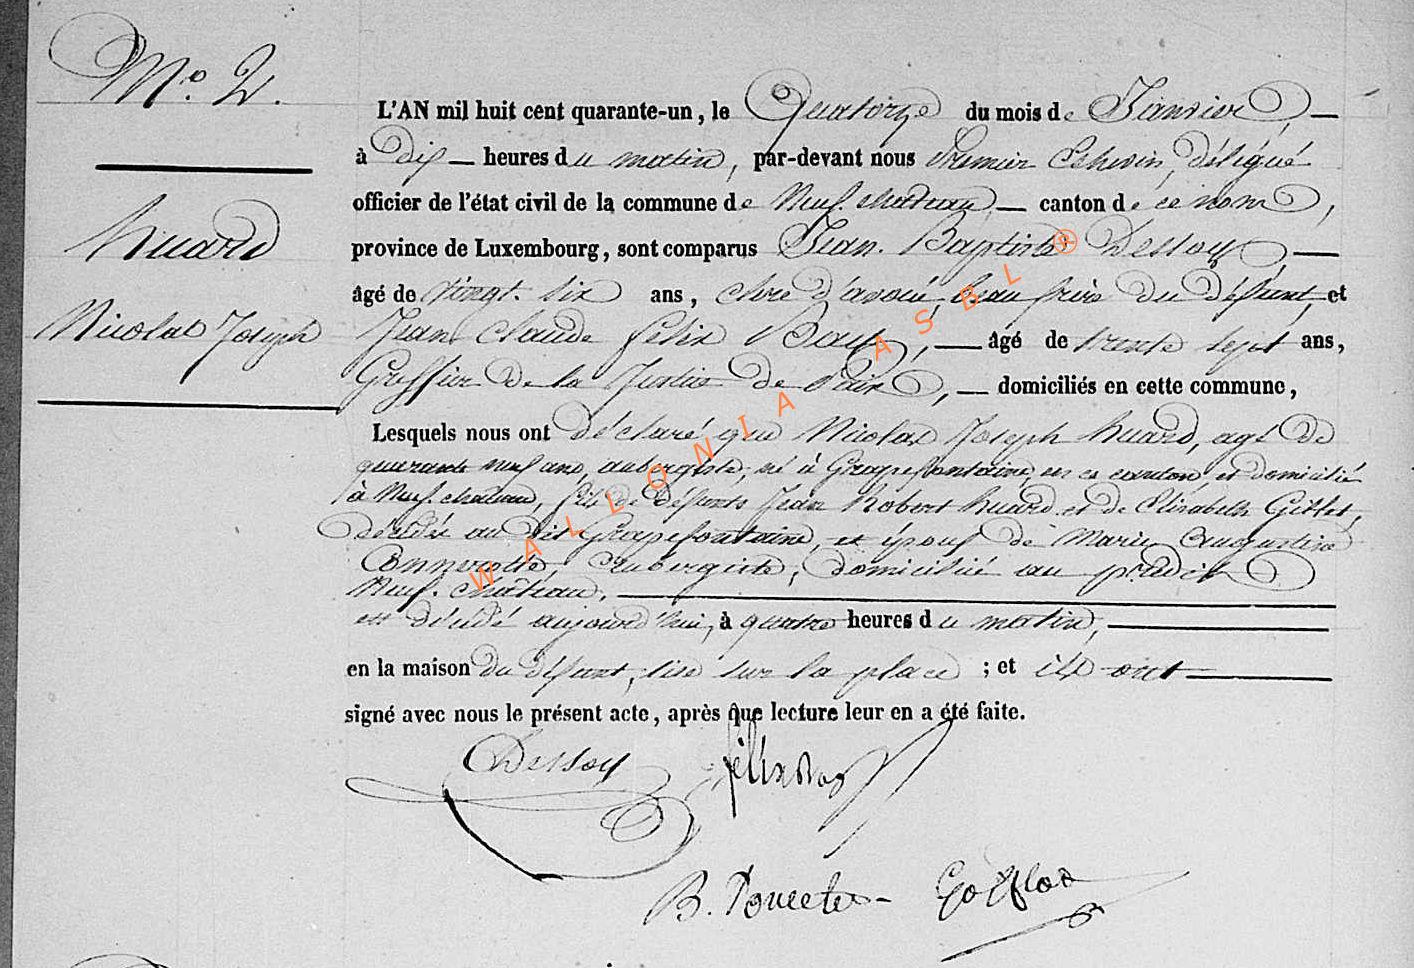 N.º 2.
Huard
Nicolas Joseph
L'AN mil huit cent quarante-un, le Quatorze du mois de Janvier,
à Dix heures du matin, par-devant nous Premier Echevin, délégué
officier de l'état civil de la commune de Neufchateau, canton de ce nom,
province de Luxembourg, sont comparus Jean Baptiste Dessoy,
âgé de Vingt-six ans, clerc d'avoué, beau frère du défunt, et
Jean Claude Félix Roy, âgé de trente sept ans,
Greffier de la Justice de Paix, domiciliés en cette commune,
Lesquels nous ont déclaré que Nicolas Joseph Huard, agé de
quarante neuf ans, aubergiste, né à Grapefontaine, en ce canton, et domicilié
à Neufchateau, fils de défunts Jean Robert Huard et de Elisabeth Gillet,
décédés au dit Grapefontaine, et époux de Marie Augustine
aubergiste, domicilié au prédit
Neufchateau,
est décédé aujourd'hui, à quatre heures du matin,
en la maison du défunt, sise sur la place ; et ils ont
signé avec nous le présent acte, après que lecture leur en a été faite.
Dessoy
B. Poncelet
WALLONIA ASBL ®